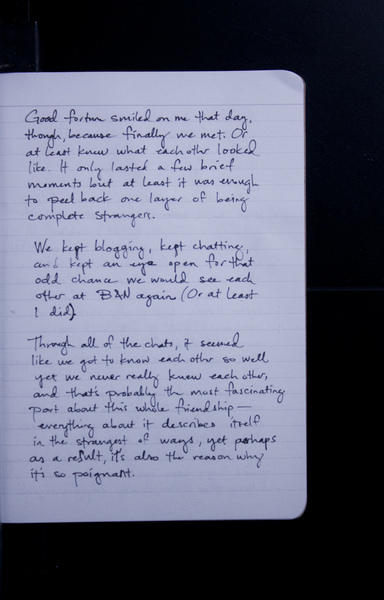 Good fortune smiled on me that day,
though, because finally we met. Or
at least knew what each other looked
like. It only lasted a few brief
moments but at least it was enough
to peel back one layer of being
complete strangers.
We kept blogging, kept chatting,
and kept an eye open for that
odd chance we would see each
other at B&N again (Or at least
I did).
Through all of the chats, it seemed
like we got to know each other so well
yet we never really knew each other,
and that's probably the most fascinating
part about this whole friendship—
everything about it describes itself
in the strangest of ways, yet perhaps
as a result, it's also the reason why
it's so poignant.